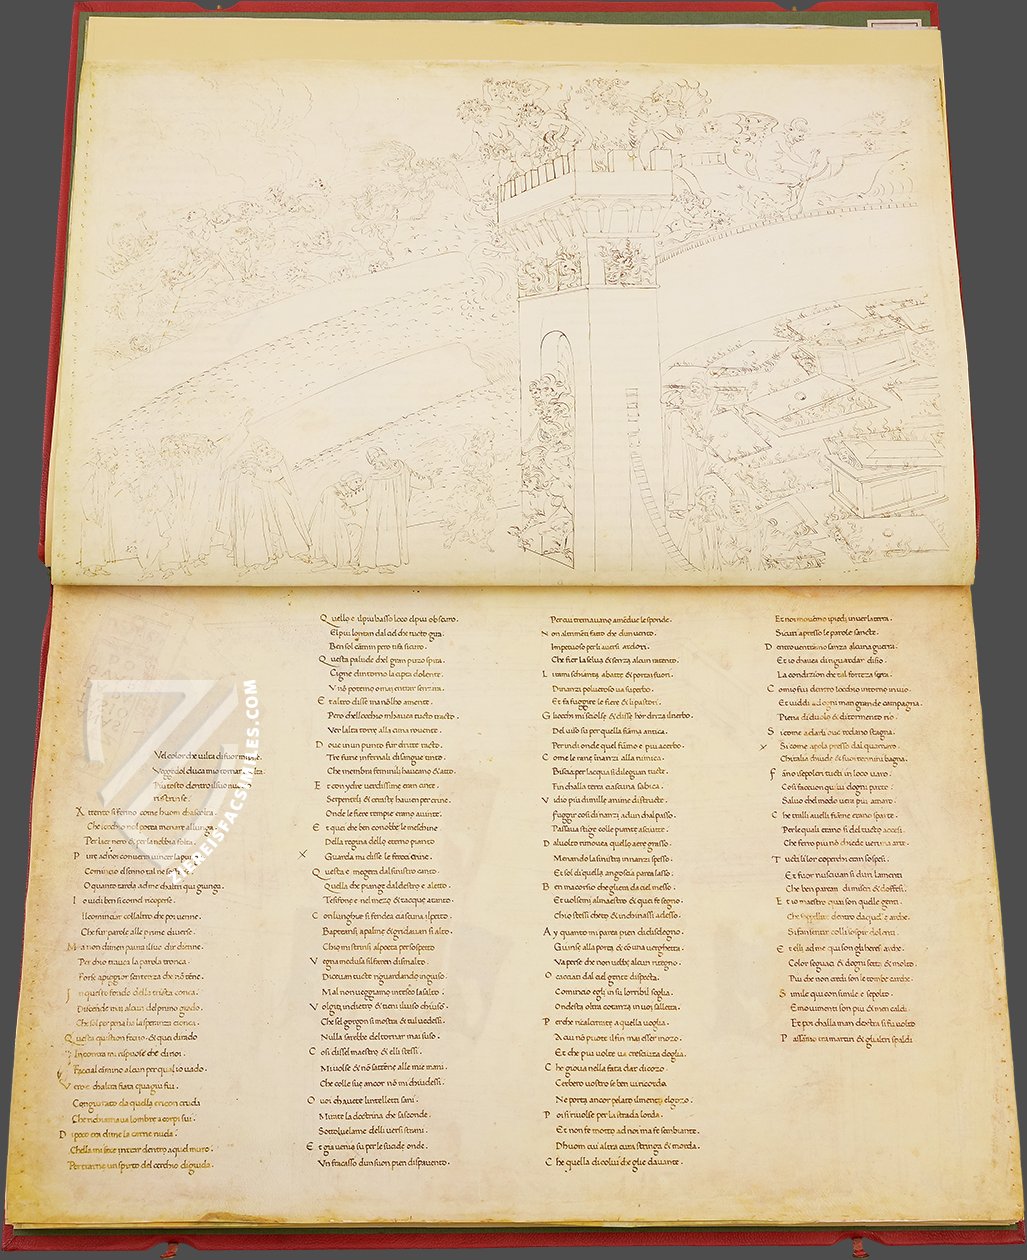 Vel color che vilta di fuor mi
Veggedol duca mio tornare
Piu tosto dentro il suo nu
ristrinse.
A ttento si fermo come huom chascolta.
Che locchio nol potea menare allunga.
Per laer nero & per la nebbia folta.
P ure ad noi converra vincer la pu
Comincio el senno tal ne so
O quanto tarda ad me chaltri qui giunga.
I o vidi ben si come ei ricoperse.
Il cominciar collaltro che poi venne.
Che fur parole alle prime diverse.
M a non dimen paura il suo dir dienne.
Per chio traeva la parola tronca.
Forse apiggior sentenza che nō tēne.
I n questo fondo della trista conca.
Discende mai alcun del primo grado.
Che sol per pena ha la speranza cionca.
Q uesta question fecio: & quei dirado
Incontra mi rispuose che di noi.
Faccia il camino alcun per qual io vado.
V ero e chaltra fiata quagiu fui.
Congiurato da quella eriton cruda
Che richiamava lombre a corpi sui.
D i poco era di me la carne nuda.
Chella mi fece intrar dentro a quel muro.
Per trarne un spirto del cerchio di giuda.
Q uello e il piu basso loco el piu obscuro.
El piu lontan dal ciel che tucto gira.
Ben sol cāmin pero ti fa sicuro.
Q uesta palude chel gran puzo spira.
Cigne dintorno la cipta dolente.
V nō potemo omai entrar senza.
E t altro disse ma nōl ho amente.
Pero che locchio mhavea tucto tracto.
Ver lalta torre alla cima rovente.
D ove in un punto fur dritte racto.
Tre furie infernali di sangue tinto.
Che membra feminili haveano & atto.
E t con ydre verdissime eran cinte.
Serpentelli & ceraste havien per crine.
Onde le fiere tempie erano avinte.
E t quei che ben conobbe le meschine
Della regina dello eterno pianto
X Guarda mi disse le feroci erine.
Q uesta e megera dal sinistro canto.
Quella che piange dal destro e aletto.
Tesifone e nel mezo & tacque atanto.
C on lunghie si fendea ciascuna il pecto.
Bapteansi a palme & gridavan si alto.
Chio mi strinsi al poeta per sospecto
V egna medusa si l faren di smalto.
Dicevan tucte riguardando ingiuso.
Mal non veggiamo in teseo lasalto.
V olgiti indietro & tien il viso chiuso.
Che sel gorgon si mostra & tul vedessi.
Nulla sarebbe del tornar mai suso.
C osi disse l maestro & elli stessi.
Mi volse & nō sattēne alle mie mani.
Che colle sue ancor nō mi chiudessi.
O voi chavete lintelletti sani.
Mirate la doctrina che sasconde.
Sotto l velame delli versi strani.
E t gia venia su per le sucide onde.
Vn fracasso dun suon pien di spavento.
Per cui tremavamo amēdue le sponde.
N on altrimēti facto che dun vento.
Impetuoso per li aversi ardori.
Che fier la selva & senza alcun ratento.
L i rami schianta abatte & porta i fuori.
Dinanzi polveroso va superbo.
Et fa fuggire le fiere & li pastori.
G liocchi mi sciolse & disse hor driza ilnerbo.
Del viso su per quella fiūma antica.
Per indi onde quel fūmo e piu acerbo.
C ome le rane inanzi alla nimica.
Biscia per lacqua si dileguan tucte.
Fin challa terra ciascuna sabica.
V idio piu di mille anime distructe.
Fuggir cosi dinanzi ad un chal passo.
Passava stige colle piante asciutte.
D al volto rimovea quello aere grasso.
Menando la sinistra innanzi spesso.
Et sol di quella angoscia parea lasso.
B en macorsio che gliera da ciel messo.
Et volsemi al maestro & quei fe segno.
Chio stessi cheto & inchinassi adesso.
A y quanto mi parea pien di disdegno.
Giunse alla porta & cō una verghetta.
Va perse che non vebbe alcun ritegno.
O cacciati dal ciel gente dispecta.
Comincio egli in su lorribil soglia.
Ondesta oltra cotanza in voi salletta.
P erche ricalcitrate a quella voglia.
A cui nō puote il fin mai esser mozo.
Et che piu volte va cresciuta doglia.
C he giova nella fata dar di cozo.
Cerbero vostro se ben vi ricorda.
Ne porta ancor pelato il mento el gozo.
P oi si rivolse per la strada lorda.
Et non fe motto ad noi ma fe sembiante.
Dhuom cui altra cura stringa & morda.
C he quella di colui che glie davante.
Et noi movēmo i piedi in ver la terra.
Sicuri apresso le parole sancte.
D entro ventrāmo sanza alcuna guerra.
Et io chavea di riguardar disio.
La condizion che tal forteza serra.
C omio fui dentro locchio intorno invio.
Et viddi adogni man grande campagna.
Piena di duolo & di tormento rio.
S i come ad arli ove rodano stagna.
X Si come a pola presso dal quarnaro
Chitalia chiude & suoi termini bagna.
F āno i sepolcri tucti in loco varo.
Cosi facevon quivi dogni parte.
Salvo chel modo vera piu amaro.
C he tralli avelli fiāme erano sparte.
Per le quali erano si del tucto accesi.
Che ferro piu nō chiede veruna arte.
T ucti li lor coperchi eran sospesi.
Et fuor nuscivan si duri lamenti
Che ben parean di miseri & doffesi.
E t io maestro quai son quelle genti.
Che seppellite dentro da quelle arche.
Si fan sentir colli sospir dolenti.
E t elli ad me qui son gli heresi arche.
Color seguaci & dogni secta & molto.
Piu che non credi son le tombe carche.
S imile qui con simile e sepolto.
E monimenti son piu & men caldi.
Et poi challa man dextra si fu volto
P assāmo tra martiri & gli altri spaldi
ZIEREISFACSIMILES.COM